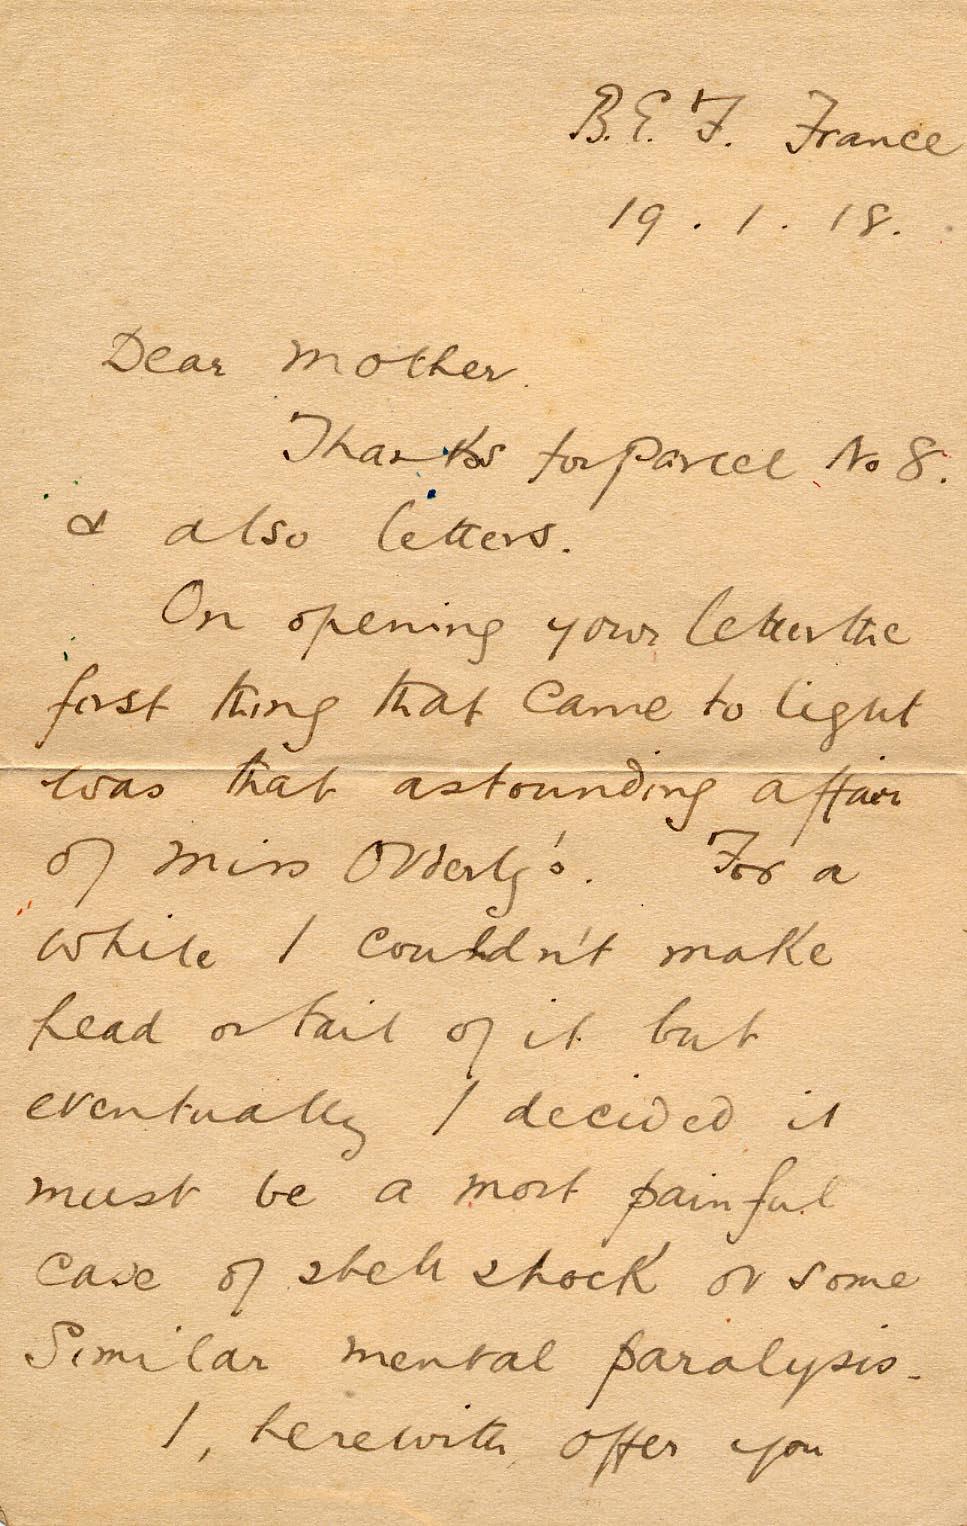 B.E.F. France
19.1.18.
Dear Mother.
Thanks for Parcel No 8.
& also letters.
On opening your letter the
first thing that came to light
was that astounding affair
of Miss
For a
while I couldn't make
head or tail of it but
eventually I decided it
must be a most painful
case of shell shock or some
Similar mental paralysis.
I, herewith, offer you